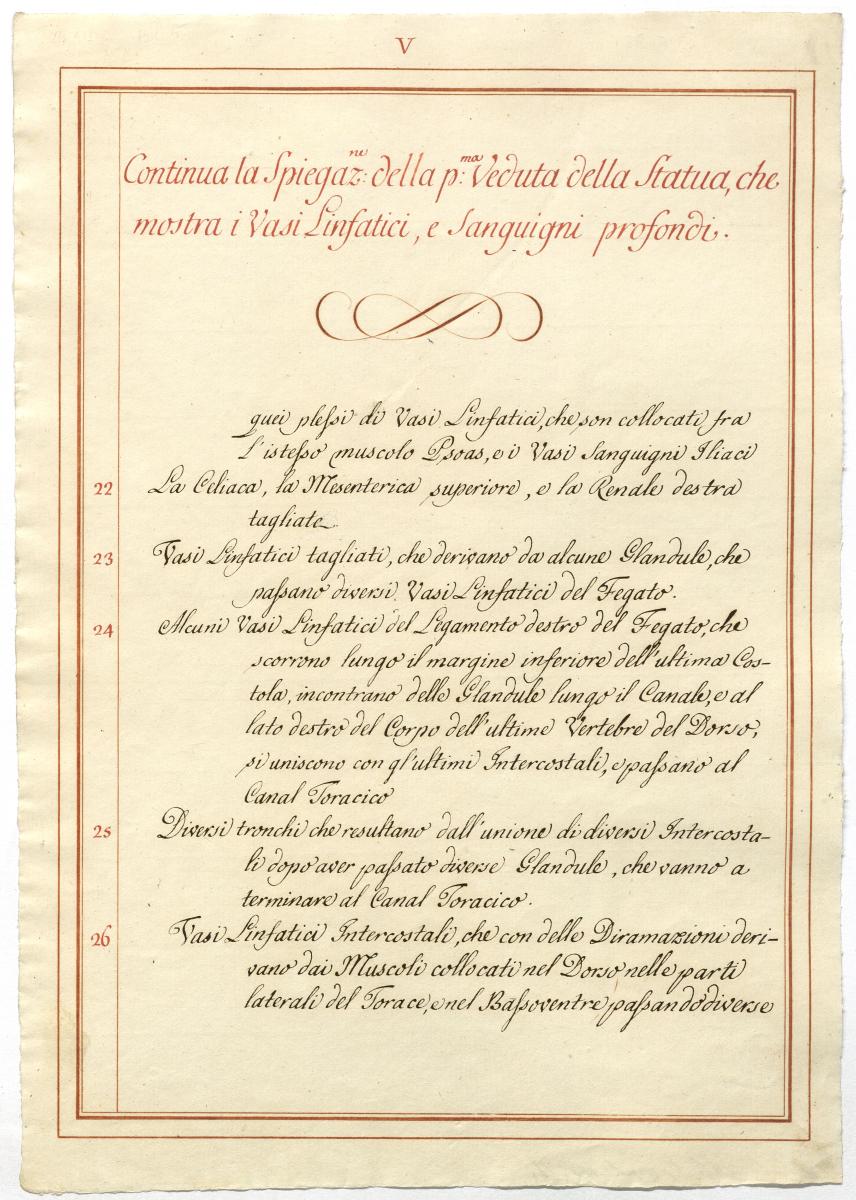 V
Continua la Spiegaz:ne della p:ma Veduta della Statua, che
mostra i Vasi Linfatici, e Sanguigni profondi.
quei plessi di Vasi Linfatici, che son collocati fra
l'istesso muscolo Psoas, e i Vasi Sanguigni Iliaci
22 La Celiaca, la Mesenterica superiore, e la Renale destra
tagliate
23 Vasi Linfatici tagliati, che derivano da alcune Glandule, che
passano diversi Vasi Linfatici del Fegato.
24 Alcuni Vasi Linfatici del Legamento destro del Fegato, che
scorrono lungo il margine inferiore dell'ultima Cos-
tola, incontrano delle Glandule lungo il Canale, e al
lato destro del Corpo dell'ultime Vertebre del Dorso,
si uniscono con gl'ultimi Intercostali, e passano al
Canal Toracico
25 Diversi tronchi che resultano dall'unione di diversi Intercosta-
li dopo aver passato diverse Glandule, che vanno a
terminare al Canal Toracico.
26 Vasi Linfatici Intercostali, che con delle Diramazioni deri-
vano dai Muscoli collocati nel Dorso nelle parti
laterali del Torace, e nel Bassoventre passando diverse